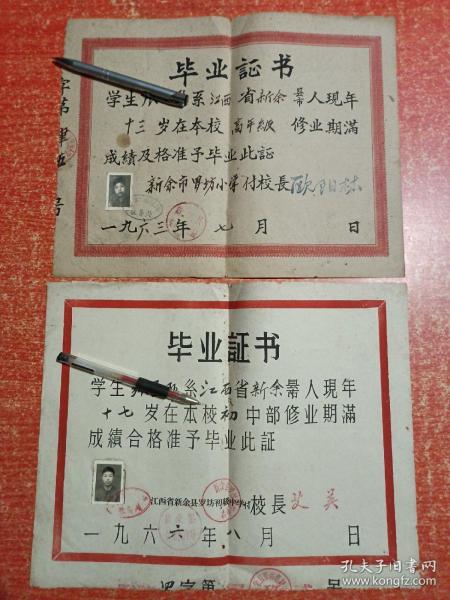 毕业証书
学生 系江西省新余县市人現年
十三岁在本校高年級修业期滿
成績及格准予毕业此証
新余市罗坊小学付校長
一九六三年七月 日
字第 号
毕业証书
学生 系江西省新余县市人現年
十七岁在本校初中部修业期滿
成績合格准予毕业此証
江西省新余县罗坊初級中学 校長艾英
一九六六年八月 日
字第 号
孔夫子旧书网